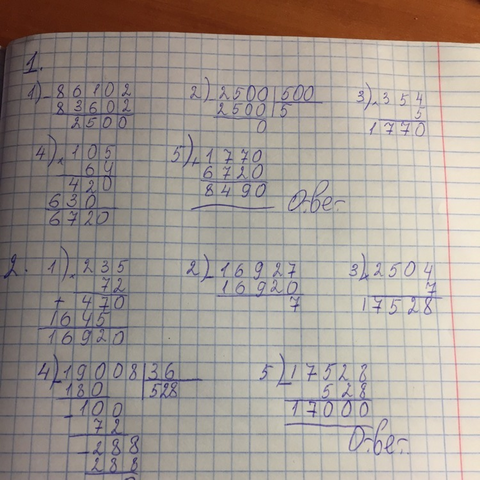 1.
1) - 86102 2) 2500 | 500 3) × 354
83602 2500 | 5 5
2500 0 1770
4) × 105 5) + 1770
64 6720
420 8490 Ответ.
630
6720
2. 1) × 235 2) - 16927 3) × 2504
72 16920 7
+ 470 7 17528
1645
16920
4) - 19008 | 36 5) - 17528
180 | 528 528
- 100 17000
72 Ответ.
- 288
288
0